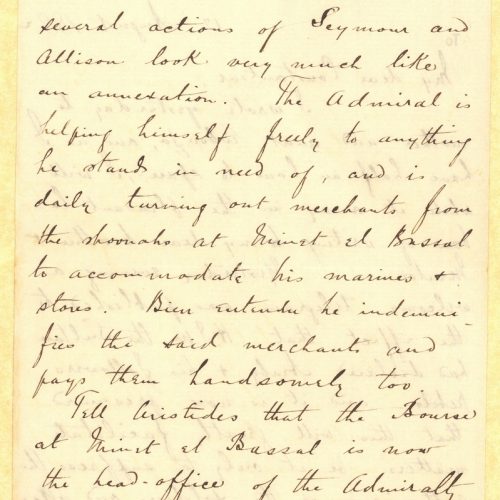 several actions of Seymour and
Allison look very much like
an annexation. The Admiral is
helping himself freely to anything
he stands in need of, and is
daily turning out merchants from
the shoonahs at Minet el Bassal
to accommodate his marines &
stores. Bien entendu he indemni-
fies the said merchants and
pays them handsomely too.
Tell Aristides that the Bourse
at Minet el Bassal is now
the head-office of the Admiralty